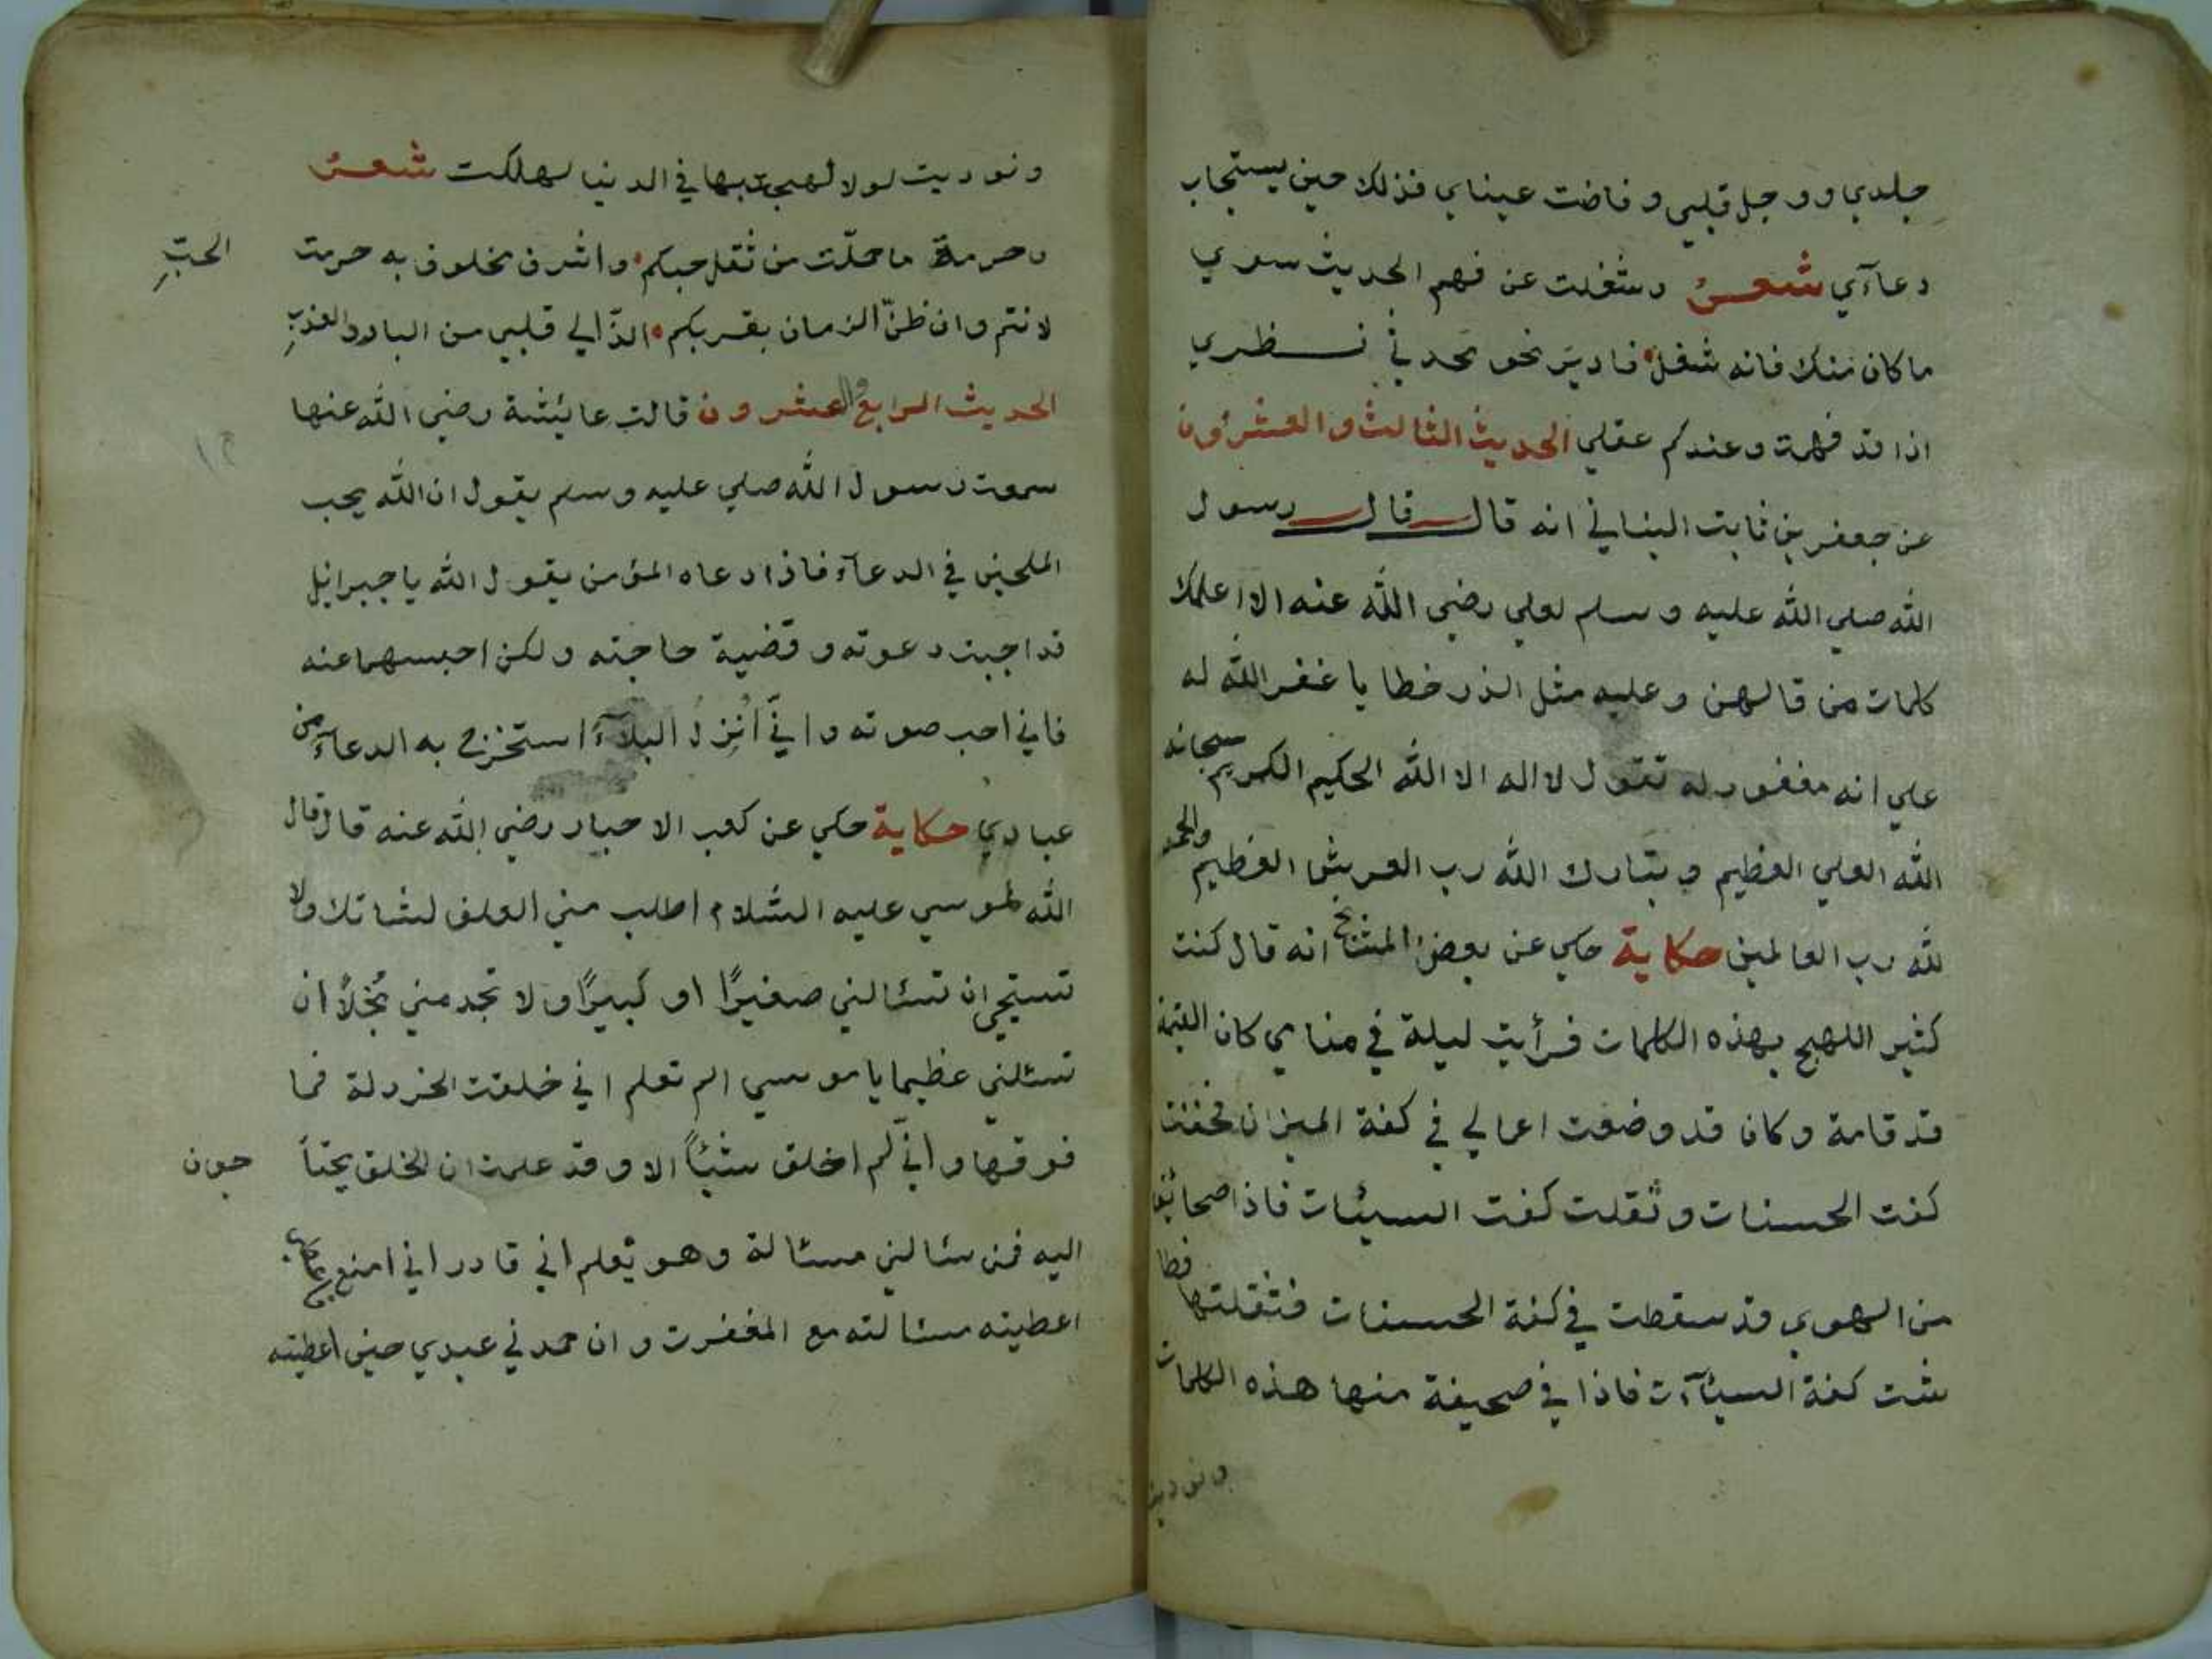 جلدي ووجل قلبي وفاضت عيناي فذلك حين يستجاب
دعاآي شعر وشغلت عن فهم الحديث سوي
ما كان منك فانه شغل فاديم نحو محدثي نظري
اذا قد فهمت وعندكم عقلي الحديث الثالث والعشرون
عن جعفر بن ثابت البناني انه قال قال رسول
الله صلي الله عليه وسلم لعلي رضي الله عنه الا اعلمك
كلمات من قالهن وعليه مثل الذر خطايا غفر الله له
علي انه مغفور له تقول لا اله الا الله الحكيم الكريم سبحانه
الله العلي العظيم وتبارك الله رب العرش العظيم والحمد
لله رب العالمين حكاية حكي عن بعض المشايخ انه قال كنت
كثير اللهج بهذه الكلمات فرأيت ليلة في منامي كان القيمة
قد قامة وكان قد وضعت اعمالي في كفة الميزان فخفت
كفت الحسنات وثقلت كفت السيئات فاذا صحائف
من الهوي قد سقطت في كفة الحسنات فثقلتها فطا
شت كفة السيئآت فاذا في صحيفة منها هذه الكلمات
ونوديت
ونوديت لولا لهجت بها في الدنيا لهلكت شعر
وحرمة ما حملت من ثقل حبكم واشرف محلوف به حرمت الحبّ
لانتم وان ظنّ الزمان بقربكم الذّ الي قلبي من البارد العذب
الحديث الرابع والعشرون قالت عايئشة رضي الله عنها
سمعت رسول الله صلي عليه وسلم يقول ان الله يحب
الملحين في الدعآء فاذا دعاه المؤمن يقول الله يا جبرائيل
قد اجبت دعوته وقضية حاجته ولكن احبسهما عنه
فاني احب صوته واني أنزل البلآء استخرج به الدعآء من
عبادي حكاية حكي عن كعب الاحبار رضي الله عنه قال قال
الله لموسي عليه السلام اطلب مني العلف لشاتك ولا
تستحي ان تسئالني صغيرًا او كبيرًا ولا تجد مني بُخلاً ان
تسئلني عظيما يا موسي الم تعلم اني خلقت الخردلة فما
فوقها واني لم اخلق شيئاً الا وقد علمت ان الخلق يحتا جون
اليه فمن سئالني مسئالة وهو يعلم اني قادر اني امنع
اعطيته مسئالته مع المغفرت وان حمدني عبدي حين اعطيته